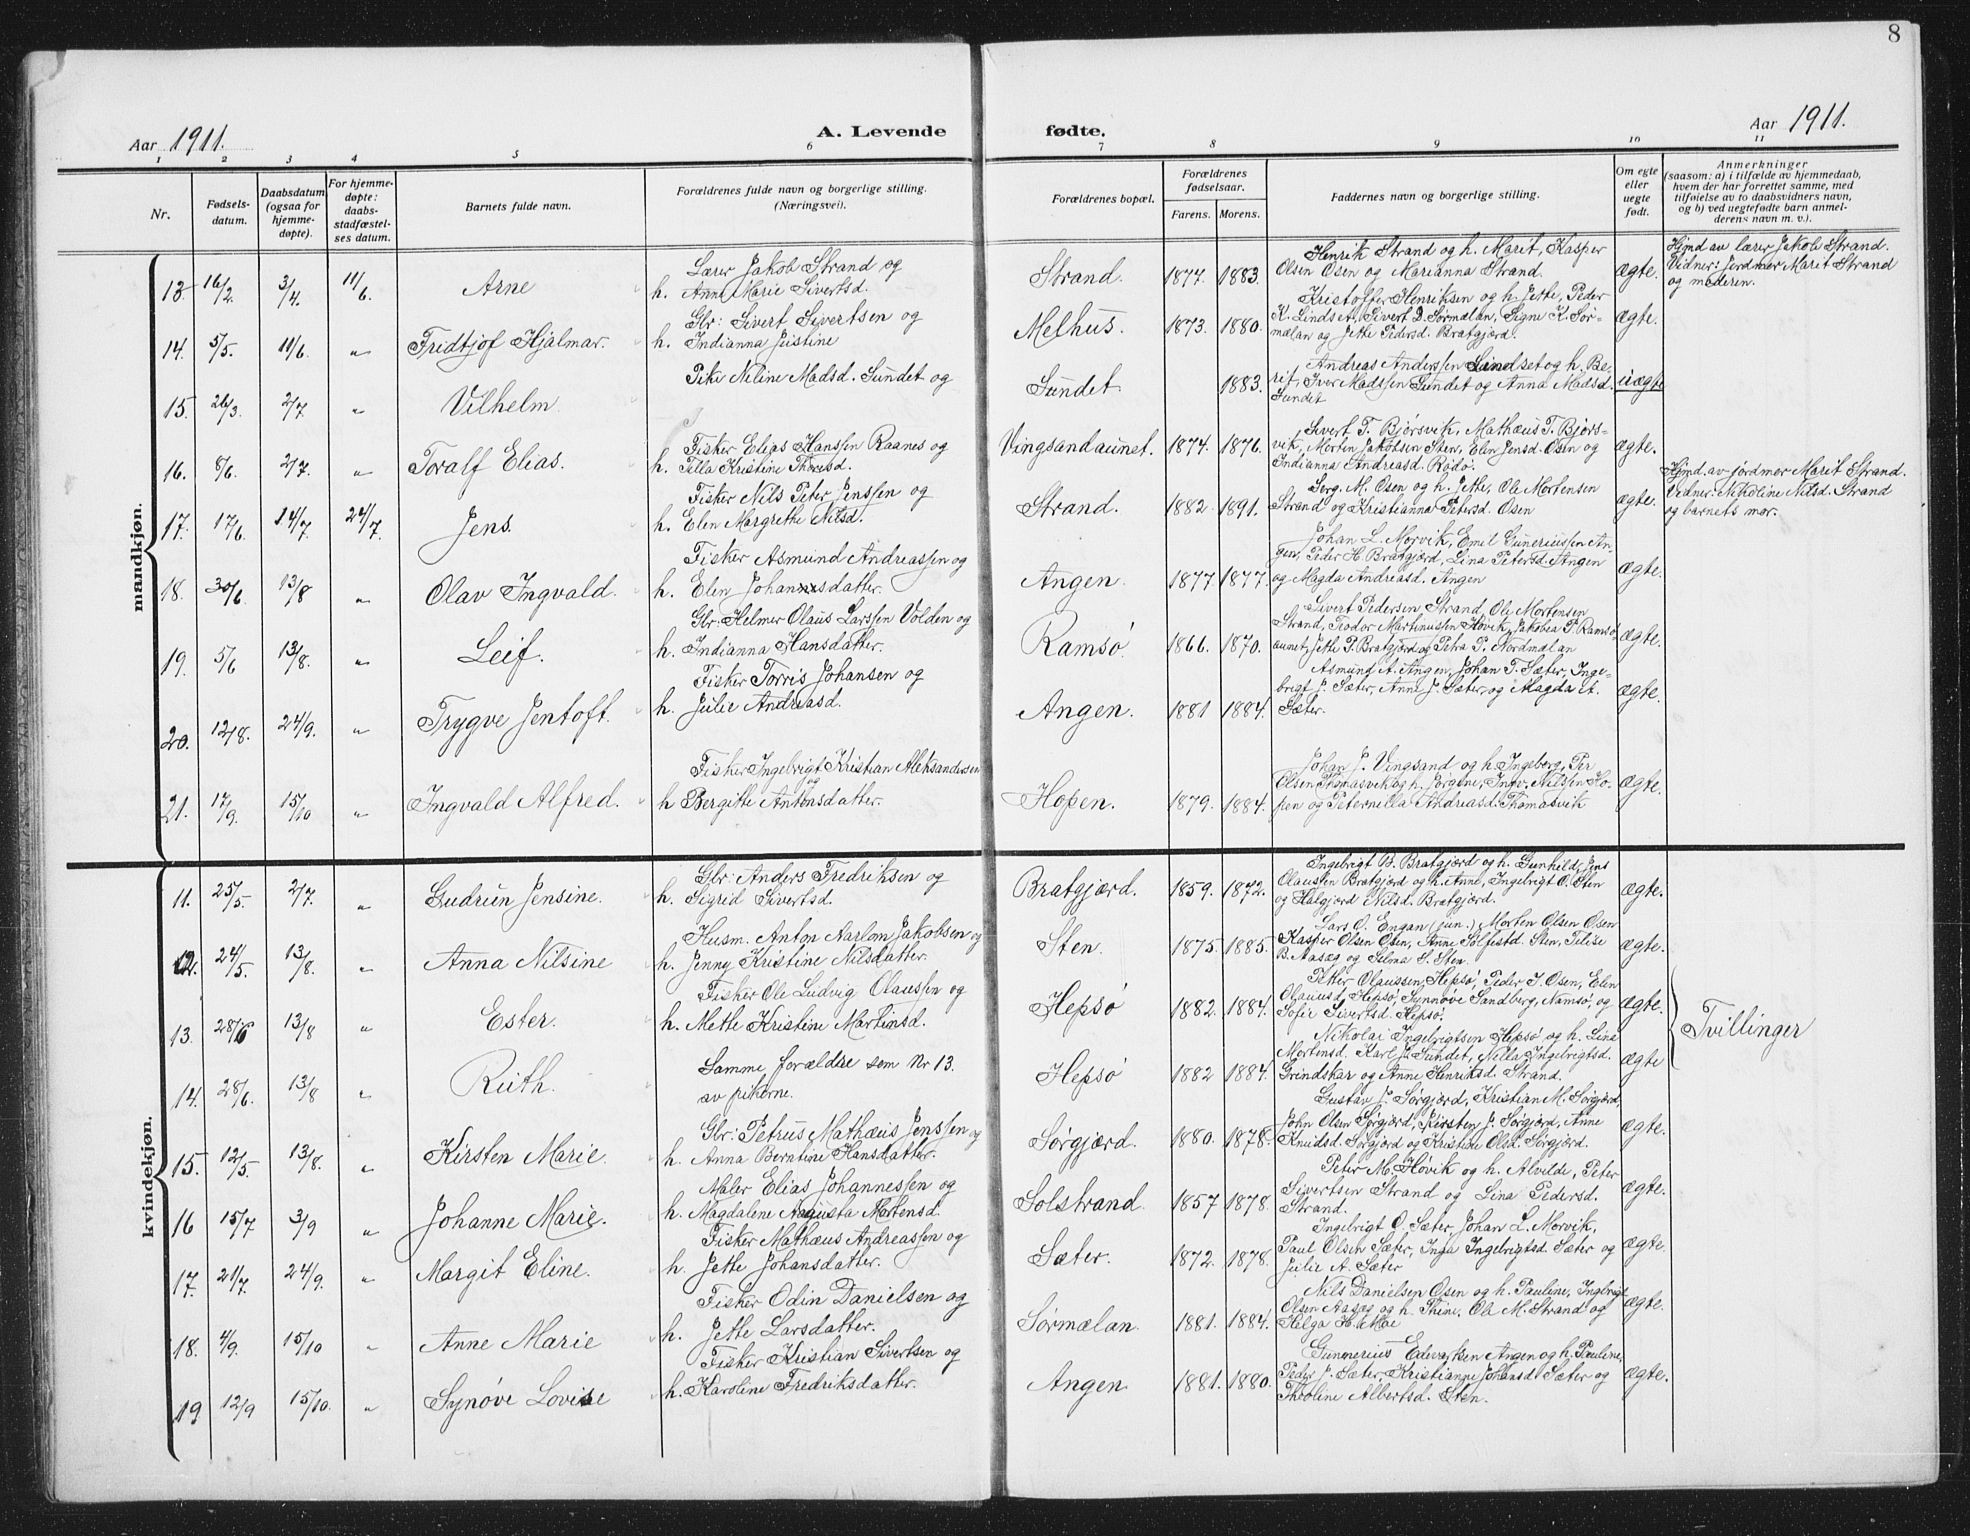 8
Aar 1911. A. Levende fødte. Aar 1911.
1 2 3 4 5 6 7 8 9 10 11
Nr.
Fødsels-
datum.
Daabsdatum
(ogsaa for
hjemme-
døpte).
For hjemme-
døpte:
daabs-
stadfæstel-
ses datum.
Barnets fulde navn.
Forældrenes fulde navn og borgerlige stilling.
(Næringsvei).
Forældrenes bopæl.
Forældrenes
fødselsaar.
Farens. Morens.
Faddernes navn og borgerlige stilling.
Om egte
eller
uegte
født.
Anmerkninger
(saasom: a) i tilfælde av hjemmedaab,
hvem der har forrettet samme, med
tilføielse av to daabsvidners navn,
og b) ved uegtefødte barn anmel-
derens navn m. v.).
mandkjøn.
13. 16/2. 3/4. 11/6. Arne
Lærer Jakob Strand og
h. Anne Marie Sivertsd.
Strand. 1877. 1883.
Henrik Strand og h. Marit, Kasper
Olsen Osen og Marianna Strand.
ægte.
Hjmd av lærer Jakob Strand.
Vidner: Jordmor Marit Strand
og moderen.
14. 5/5. 11/6. " Fridtjof Hjalmar.
Gbr: Sivert Sivertsen og
h. Indianna Justine
Melhus. 1873. 1880.
Kristoffer Henriksen og h. Jette, Peder
K. Lindset, Sivert D. Sørmælan, Signe K. Sør-
mælan og Jette Pedersd. Bratgjærd.
ægte.
15. 26/3. 2/7. " Vilhelm.
Pike Neline Madsd. Sundet og
Sundet. 1883.
Andreas Anderssen Lindset og h. Be-
rit, Iver Madssen Sundet og Anna Madsd.
Sundet
uægte
16. 8/6. 2/7. " Toralf Elias.
Fisker Elias Hanssen Raanes og
h. Tilla Kristine Thoresd.
Vingsandaunet. 1874. 1876.
Sivert T. Bjørsvik, Mathæus T. Bjørs-
vik, Morten Jakobsen Sten, Elen Jensd. Osen og
Indianna Andreasd. Rødø.
ægte.
17. 17/6. 14/7. 24/7. Jens.
Fisker Nils Peter Jenssen og
h. Elen Margrethe Nilsd.
Strand. 1882. 1891.
Serg. M. Osen og h. Jette, Ole Mortensen
Strand og Kristianna Petersd. Osen
ægte.
Hjmd. av jordmor Marit Strand.
Vidner: Nikoline Nilsd. Strand
og barnets mor.
18. 30/6. 13/8 " Olav Ingvald.
Fisker Asmund Andreassen og
h. Elen Johannesdatter.
Angen. 1877. 1877.
Johan L. Morvik, Emil Guneriussen An-
gen, Peder H. Bratgjærd, Lina Petersd. Angen
og Magda Andreasd. Angen
ægte.
19. 5/6 13/8. " Leif.
Gbr: Helmer Olaus Larssen Volden og
h. Indianna Hansdatter.
Ramsø. 1866. 1870.
Sivert Pedersen Strand, Ole Mortensen
Strand, Teodor Martinussen Høvik, Jakobia P. Ramsø-
aunet, Jette P. Bratgjærd og Petra P. Nordmælan
ægte.
20. 12/8. 24/9. " Trygve Jentoft.
Fisker Torris Johansen og
h. Julie Andreasd.
Angen. 1881 1884.
Asmund A. Angen, Johan T. Sæter, Inge-
brigt J. Sæter, Anne J. Sæter, og Magda A.
Sæter.
ægte.
21. 17/9. 15/10 " Ingvald Alfred.
Fisker Ingebrigt Kristian Aleksandersen
og
h Bergitte Antonsdatter.
Hopen. 1879. 1884.
Johan J. Vingsand og h. Ingeberg, Per
Olsen Thomasvik og h. Jørgine, Ingv. Nilssen Ho-
pen og Peternella Andreasd. Thomasvik
ægte.
kvindekjøn.
11. 25/5. 2/7. " Gudrun Jensine.
Gbr: Anders Fredriksen og
h. Sigrid Sivertsd.
Bratgjærd. 1859. 1872.
Ingebrigt B. Bratgjærd og h. Gunhild, Jens
Olaussen Bratgjærd og h. Anne, Ingebrigt O. Sten
og Halgjerd Nilsd. Bratgjærd.
ægte.
12. 24/5. 13/8. " Anna Nilsine
Husm. Anton Aarlom Jakobsen og
h. Jenny Kristine Nilsdatter.
Sten. 1875. 1885.
Lars O. Engan (jun.) Morten Olsen Osen
Kasper Olsen Osen, Anne Solfestd. Sten, Tilise
B. Aasæg og Selma S. Sten.
ægte.
13. 28/6 13/8 " Ester.
Fisker Ole Ludvig Olaussen og
h. Mette Kristine Martinsd.
Hepsø 1882. 1884.
Petter Olaussen, Hepsø, Peder J. Osen, Elen
Olausd, Hepsø, Synnøve Sandberg, Namsø, og
Sofie Sivertsd. Hepsø.
ægte.
Tvillinger
14. 28/6. 13/8 " Ruth.
Samme forældre som Nr 13.
av pikerne.
Hepsø 1882 1884.
Nikolai Ingebrigtsen Hepsø og h. Lina
Mortensd. Karl J. Sundet, Nilla Ingebrigtsd.
Grindskar og Anne Henriksd. Strand.
ægte
15. 12/5. 13/8. " Kirsten Marie.
Gbr: Petrus Mathæus Jenssen og
h. Anna Berntine Hansdatter.
Sørgjærd. 1880. 1878.
Gustav J. Sørgjærd, Kristian M. Sørgjærd,
John Olsen Sørgjærd, Kirsten J. Sørgjærd, Anne
Knudsd. Sørgjærd og Kristine Olsd. Sørgjærd.
ægte.
16 15/7 3/9 " Johanne Marie.
Maler Elias Johannessen og
h. Magdalene Augusta Mortensd.
Solstrand. 1857 1878.
Peter M. Høvik og h. Alvilde, Peter
Sivertsen Strand og Lina Pedersd.
Strand.
ægte.
17. 21/7. 24/9. " Margit Eline.
Fisker Mathæus Andreassen og
h. Jette Johansdatter.
Sæter. 1872. 1878.
Ingebrigt O. Sæter, Johan L. Morvik,
Paul Olsen Sæter, Inga Ingebrigtsd. Sæter og
Julie A. Sæter
ægte.
18. 4/9. 15/10 " Anne Marie
Fisker Odin Danielsen og
h. Jette Larsdatter.
Sørmælan. 1881. 1884.
Nils Danielsen Osen og h. Pauline, Ingebrigt
Olsen Aasæg og h. Thine, Ole M. Strand og
Helga H. Moe
ægte.
19 12/9 15/10. " Synøve Lovise
Fisker Kristian Sivertsen og
h. Karoline Fredriksdatter.
Angen 1881. 1880.
Gunnerius Edevardsen Angen og h. Pauline,
Peder J. Sæter, Kristianne Johansd. Sæter og
Theoline Albertsd. Sten.
ægte.